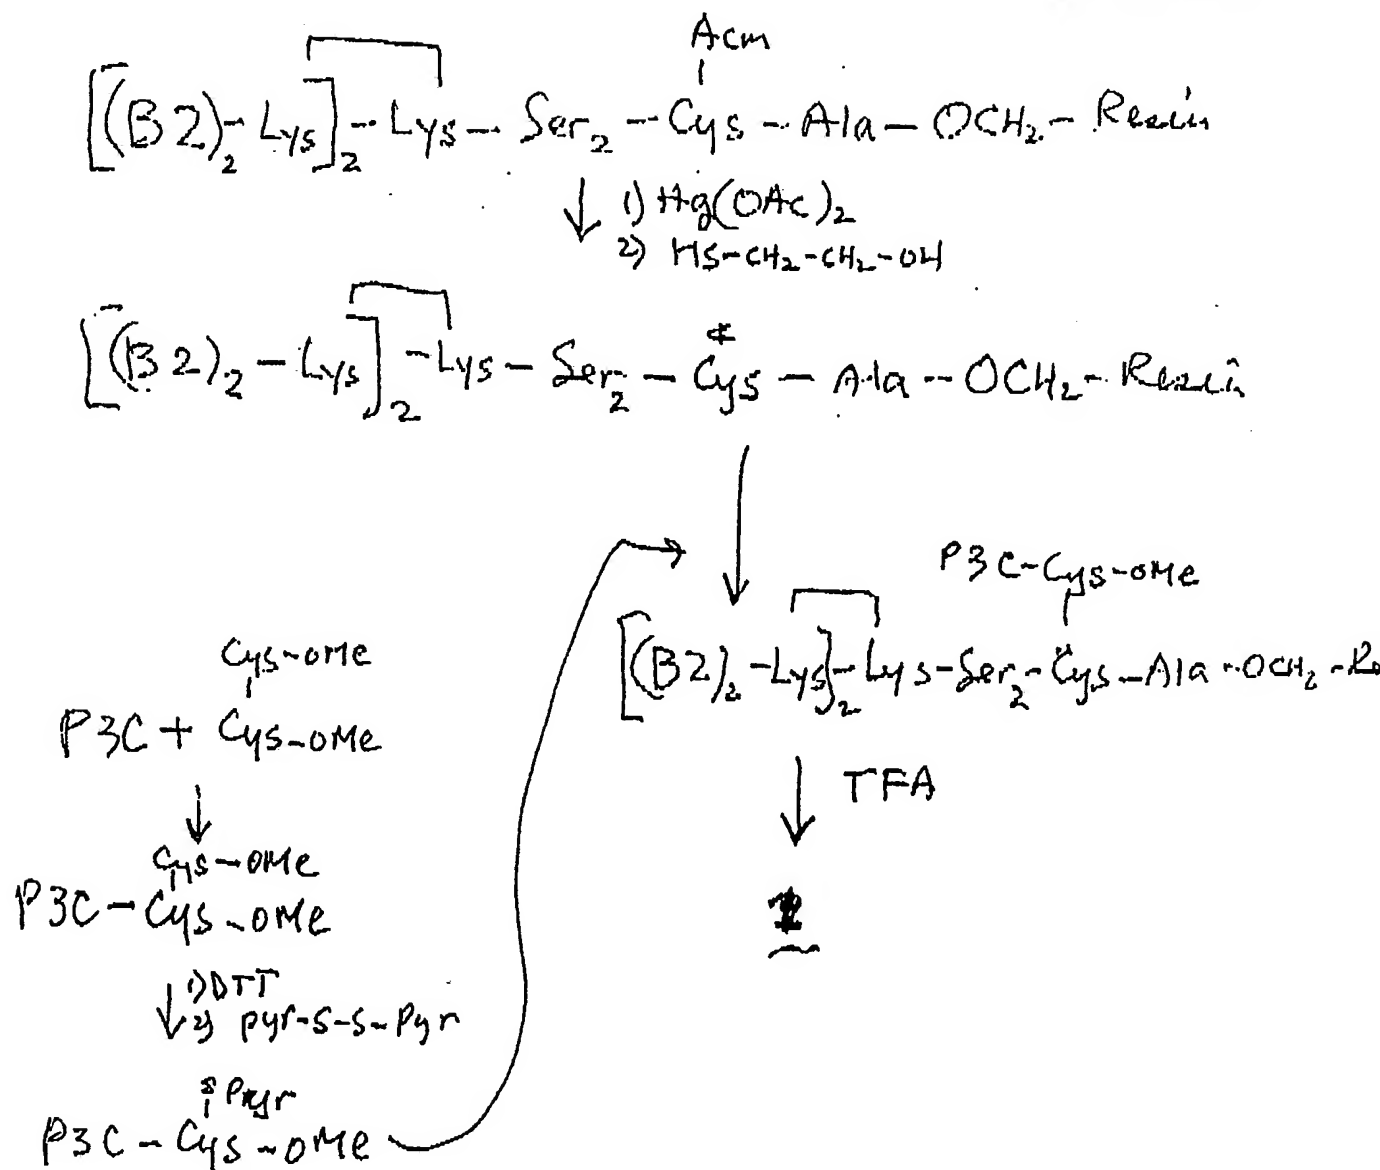 Acm
[(B2)2-Lys]2-Lys-Ser2-Cys-Ala-OCH2-Resin
1) Hg(OAc)2
2) HS-CH2-CH2-OH
[(B2)2-Lys]2-Lys-Ser2-Cys-Ala-OCH2-Resin
P3C-Cys-OMe
[(B2)2-Lys]2-Lys-Ser2-Cys-Ala-OCH2-Re
TFA
Cys-OMe
P3C + Cys-OMe
Cys-OMe
P3C-Cys-OMe
1) DTT
2) pyr-S-S-Pyr
P3C-Cys-OMe